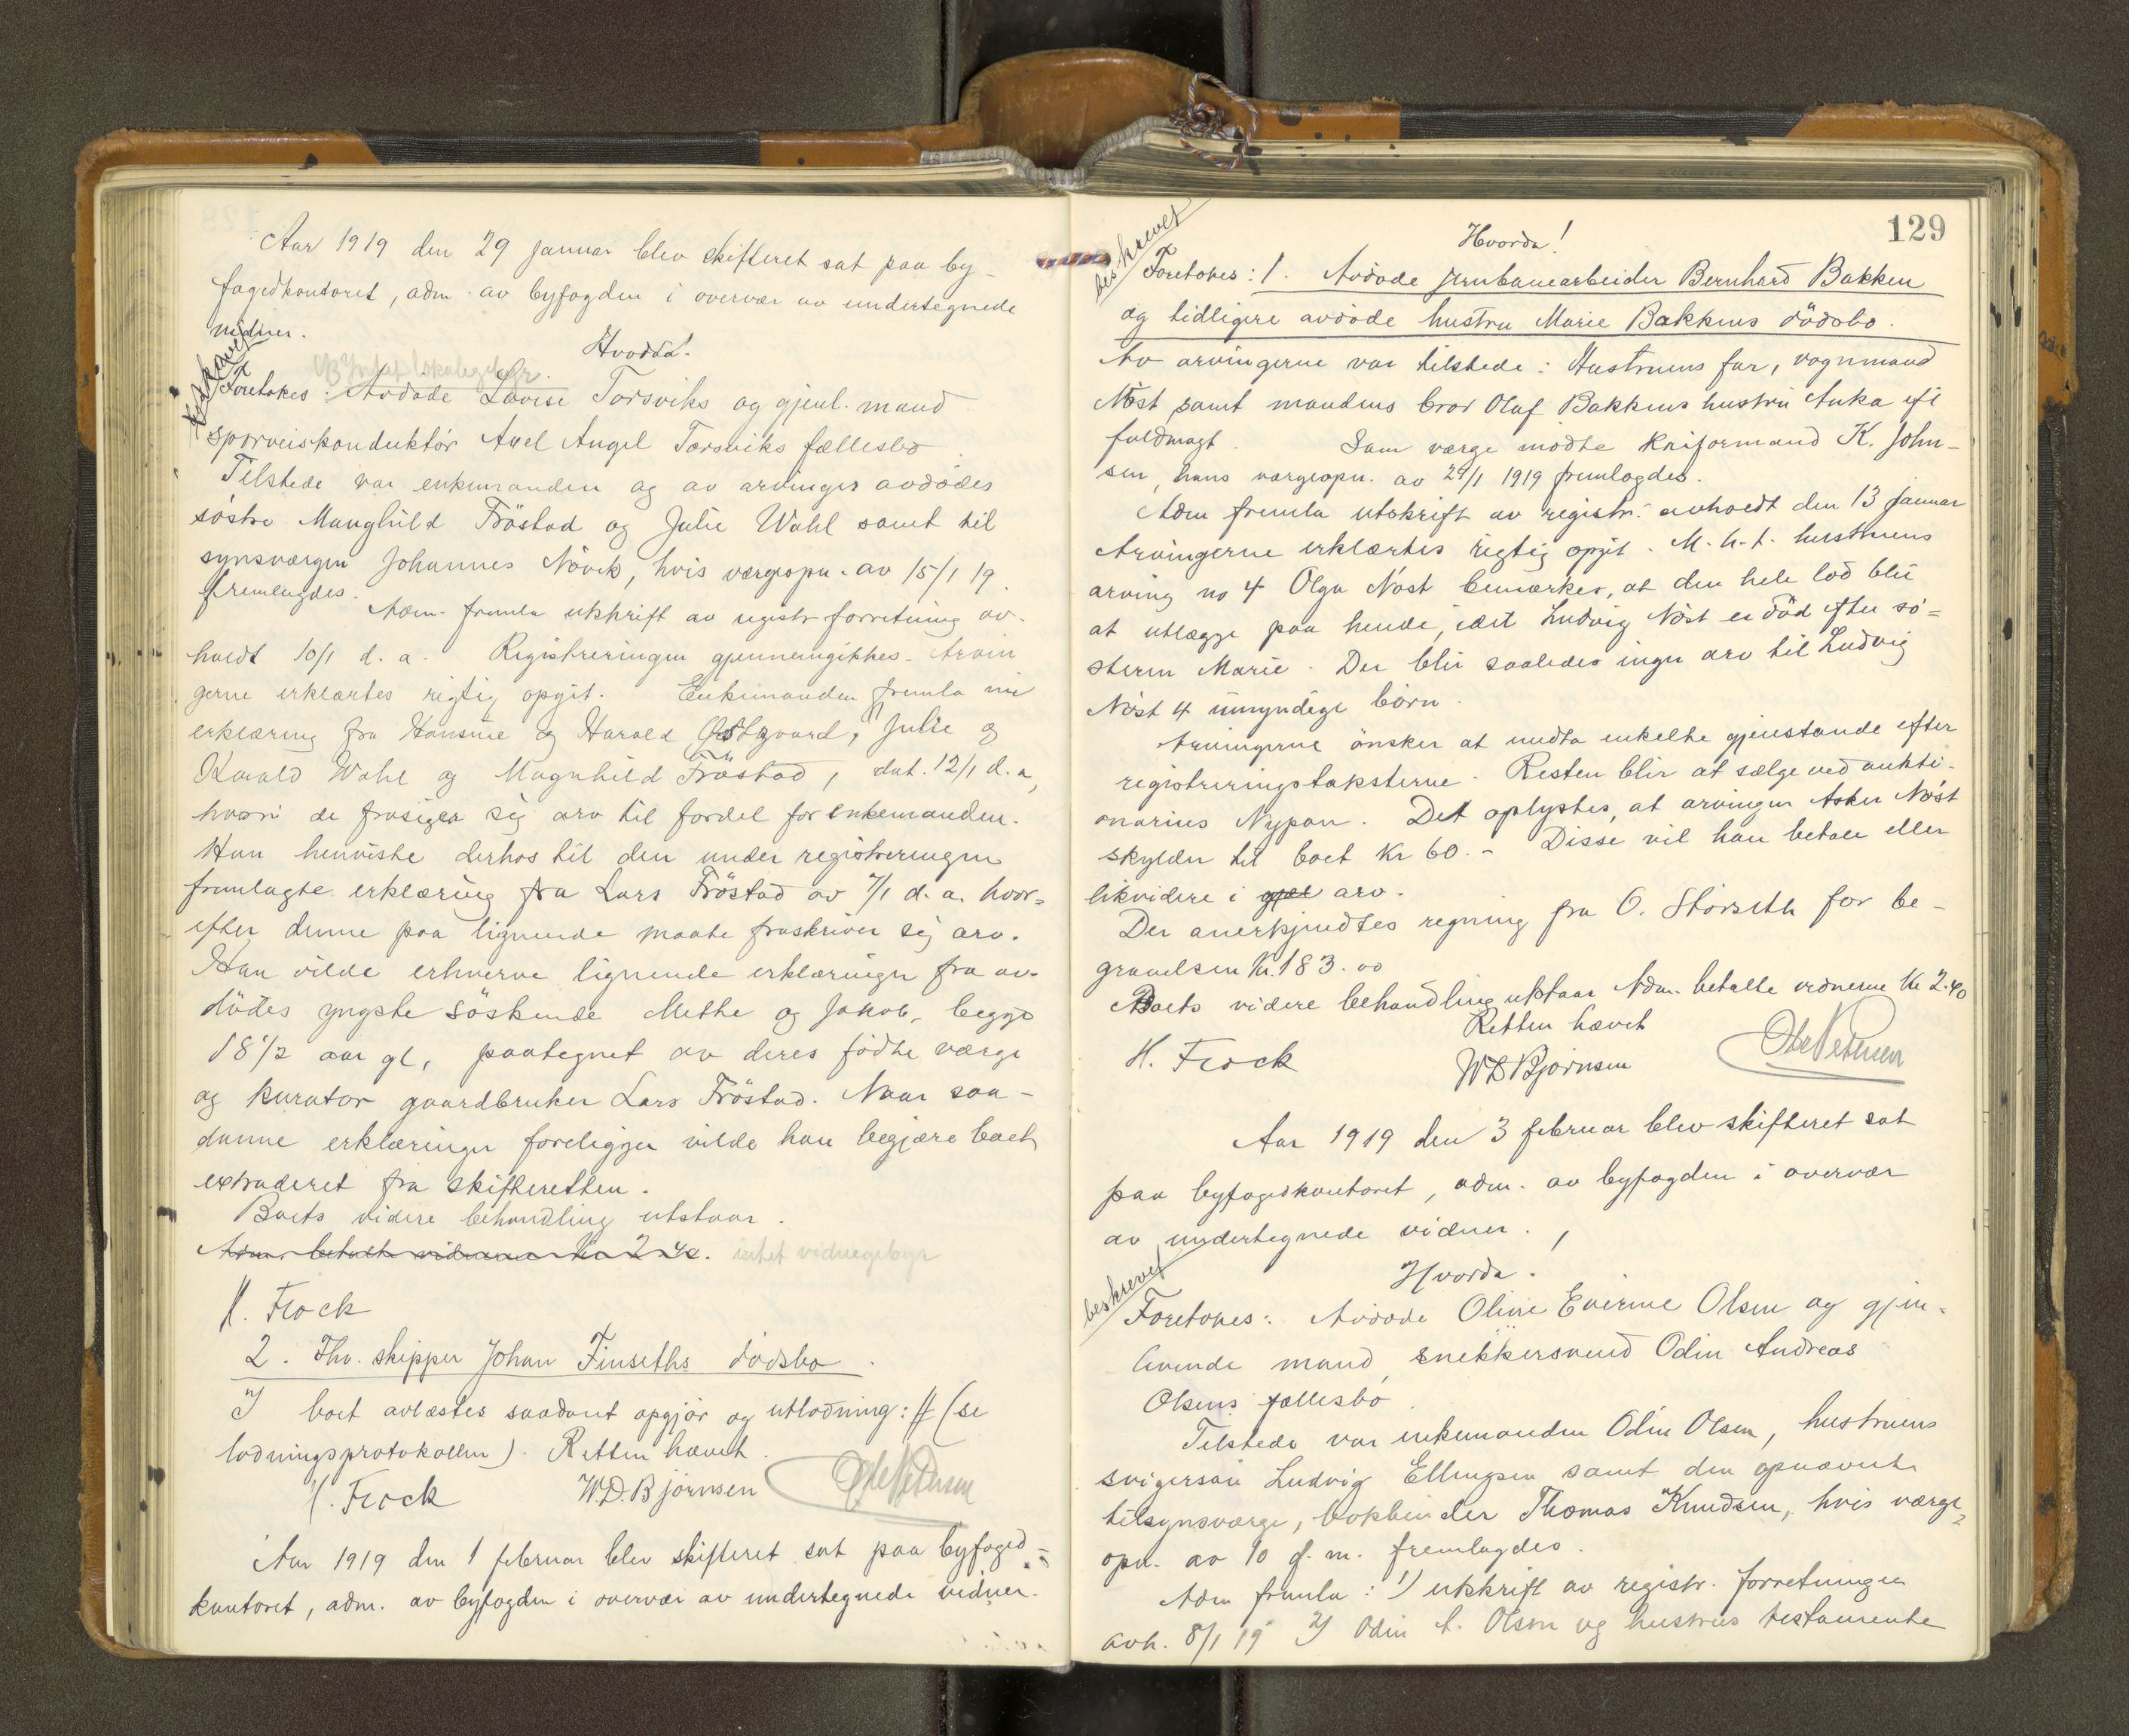 Aar 1919 den 29 januar blev skifteret sat paa by-
fogedkontoret, adm. av byfogden i overvær av undertegnede
vidner.
Hvorda!
beskrevet
Foretokes: Avdøde Lovise Torsviks og gjenl. mand
sporveiskonduktør Axel Angel Torsviks fællesbo
Tilstede var enkemanden og av arvinger avdødes
søstre Manghild Frøstad og Julie Wahl samt til
synsværgen Johannes Növik, hvis værgeopn. av 15/1 19.
fremlagdes.
Adm. fremla utskrift av registr forretning av-
holdt 10/1 d. a. Registreringen gjennemgikkes. Arvin
gerne erklærtes rigtig opgit. Enkemanden fremla
erklæring fra Hansine og Harald Østgaard, Julie og
Harald Wahl og Magnhild Fröstad, dat. 12/1 d. a,
hvori de frasiger sig arv til fordel for enkemanden.
Han henviste derhos til den under registreringen
fremlagte erklæring fra Lars Fröstad av 7/1 d. a. hvor=
efter denne paa lignende maate fraskriver sig arv.
Han vilde erhverve lignende erklæringer fra av-
dödes yngste söskende Methe og Jakob, begge
18 1/2 aar gl, paategnet av deres födte værge
og kurator gaardbruker Lars Fröstad. Naar saa-
danne erklæringer foreligger vilde han begjære boet
extraderet fra skifteretten.
Boets videre behandling utstaar.
Adm. betalte vidnerne Kr 2.40. intet vidnegebyr
H. Frock
2. Fhv. skipper Johan Finseths dødsbo.
I boet avlæstes saadant opgjør og utlodning: # (se
lodningsprotokollen). Retten hævet.
H. Frock W.D. Bjørnsen Ole Petersen
Aar 1919 den 1 februar blev skifteret sat paa byfoged=
kontoret, adm. av byfogden i overvær av undertegnede vidner.
129
Hvorda!
beskrevet
Foretokes: 1. Avdøde jernbanearbeider Bernhard Bakken
og tidligere avdøde hustru Marie Bakkens dödsbo.
Av arvingerne var tilstede: Hustruens far, vognmand
Nöst samt mandens bror Olaf Bakkens hustru Anka ifl
fuldmagt. Som værge mødte Kaiformand K. John-
sen, hans værgeopn. av 29/1 1919 fremlagdes.
Adm fremla utskrift av registr. avholdt den 13 januar
Arvingerne erklærtes rigtig opgit. M. h. t. hustruens
arving no 4 Olga Nöst bemærkes, at den hele lod blir
at utlægge paa hende, idet Ludvig Nöst er död efter sö=
steren Marie. Der blir saaledes ingen arv til Ludvig
Nöst 4 umyndige børn.
Arvingerne ønsker at undta enkelte gjenstande efter
registreringstaksterne. Resten blir at sælge ved aukti-
onarius Nypan. Det oplystes, at arvingen Asker Nöst
skylder til boet Kr 60.- Disse vil han betale eller
likvidere i gjæl arv.
Der anerkjendtes regning fra O. Störseth for be-
gravelsen Kr. 183.00
Boets videre behandling utstaar Adm. betalte vidnerne Kr 2.40
Retten hævet
H. Frock WD Bjørnsen Ole Petersen
Aar 1919 den 3 februar blev skifteret sat
paa byfogedkontoret, adm. av byfogden i overvær
av undertegnede vidner.
Hvorda.
beskrevet
Foretokes: Avdøde Oline Evine Olsen og gjen=
levende mand, snekkersvend Odin Andreas
Olsens fællesbo.
Tilstede var enkemanden Odin Olsen, hustruens
svigersøn Ludvig Ellingsen samt den opnævnte
tilsynsværge, bokbinder Thomas Knudsen, hvis værge=
opn. av 10 f. m. fremlagdes.
Adm fremla: 1) utskrift av registr. forretningen
avh. 8/1 19 2) Odin A. Olsen og hustrus testamente